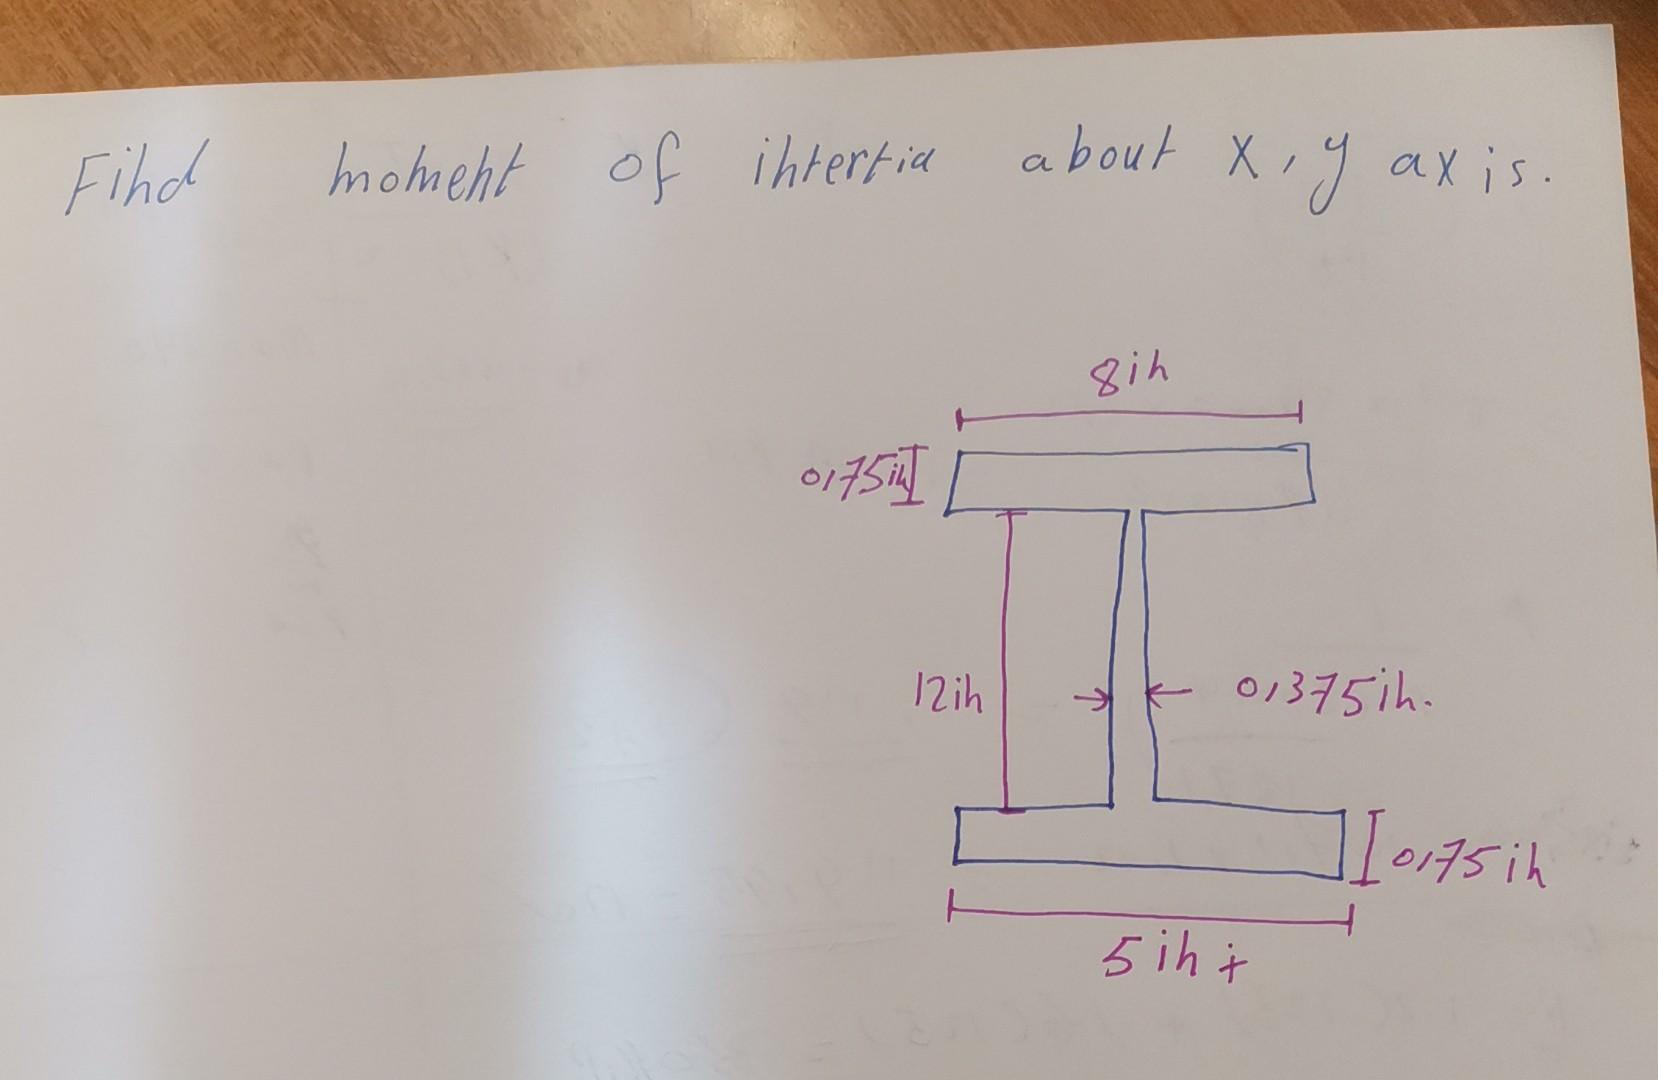 Find moment of intertia about x, y axis.
8in
0,75in
12in
0,375in.
0,75in
5in